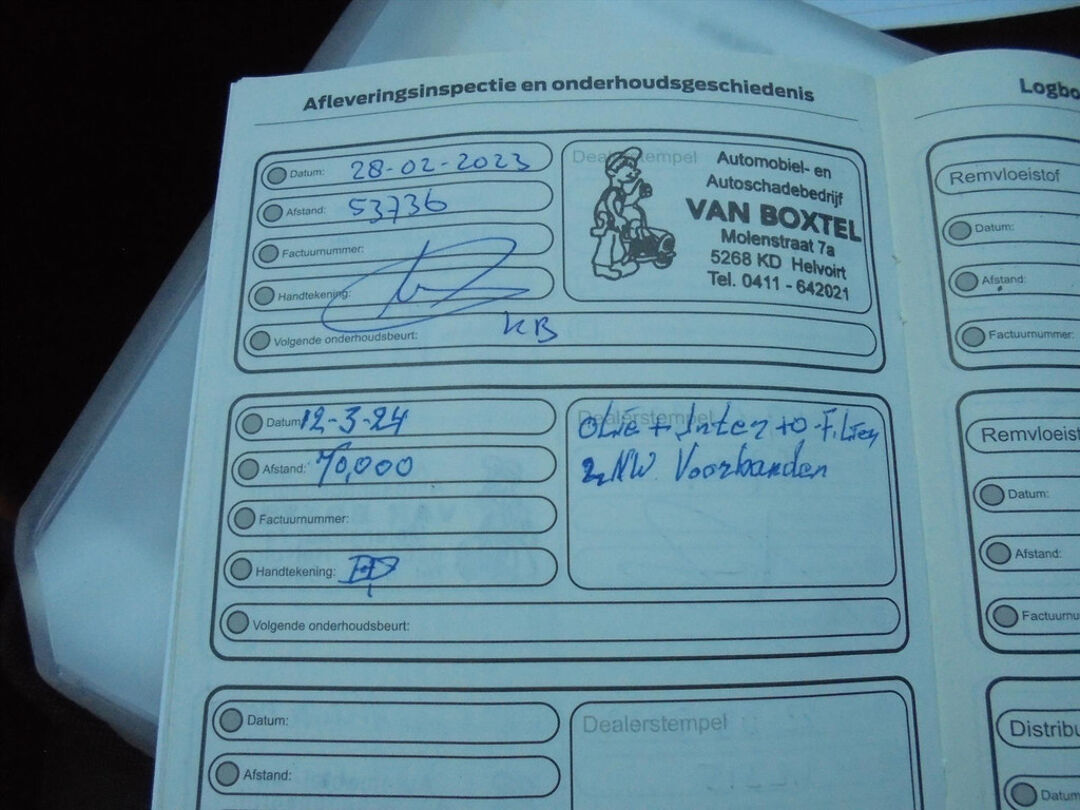 Afleveringsinspectie en onderhoudsgeschiedenis
Datum: 28-02-2023
Afstand: 53736
Factuurnummer:
Handtekening:
Volgende onderhoudsbeurt: KB
Dealerstempel
Automobiel- en
Autoschadebedrijf
VAN BOXTEL
Molenstraat 7a
5268 KD Helvoirt
Tel. 0411 - 642021
Datum: 12-3-24
Afstand: 70,000
Factuurnummer:
Handtekening:
Volgende onderhoudsbeurt:
Dealerstempel
oLie + Inter +o-FiLter
2 NW. Voorbanden
Datum:
Afstand:
Dealerstempel
Logbo
Remvloeistof
Datum:
Afstand:
Factuurnummer:
Remvloeist
Datum:
Afstand:
Factuurnu
Distribu
Datum